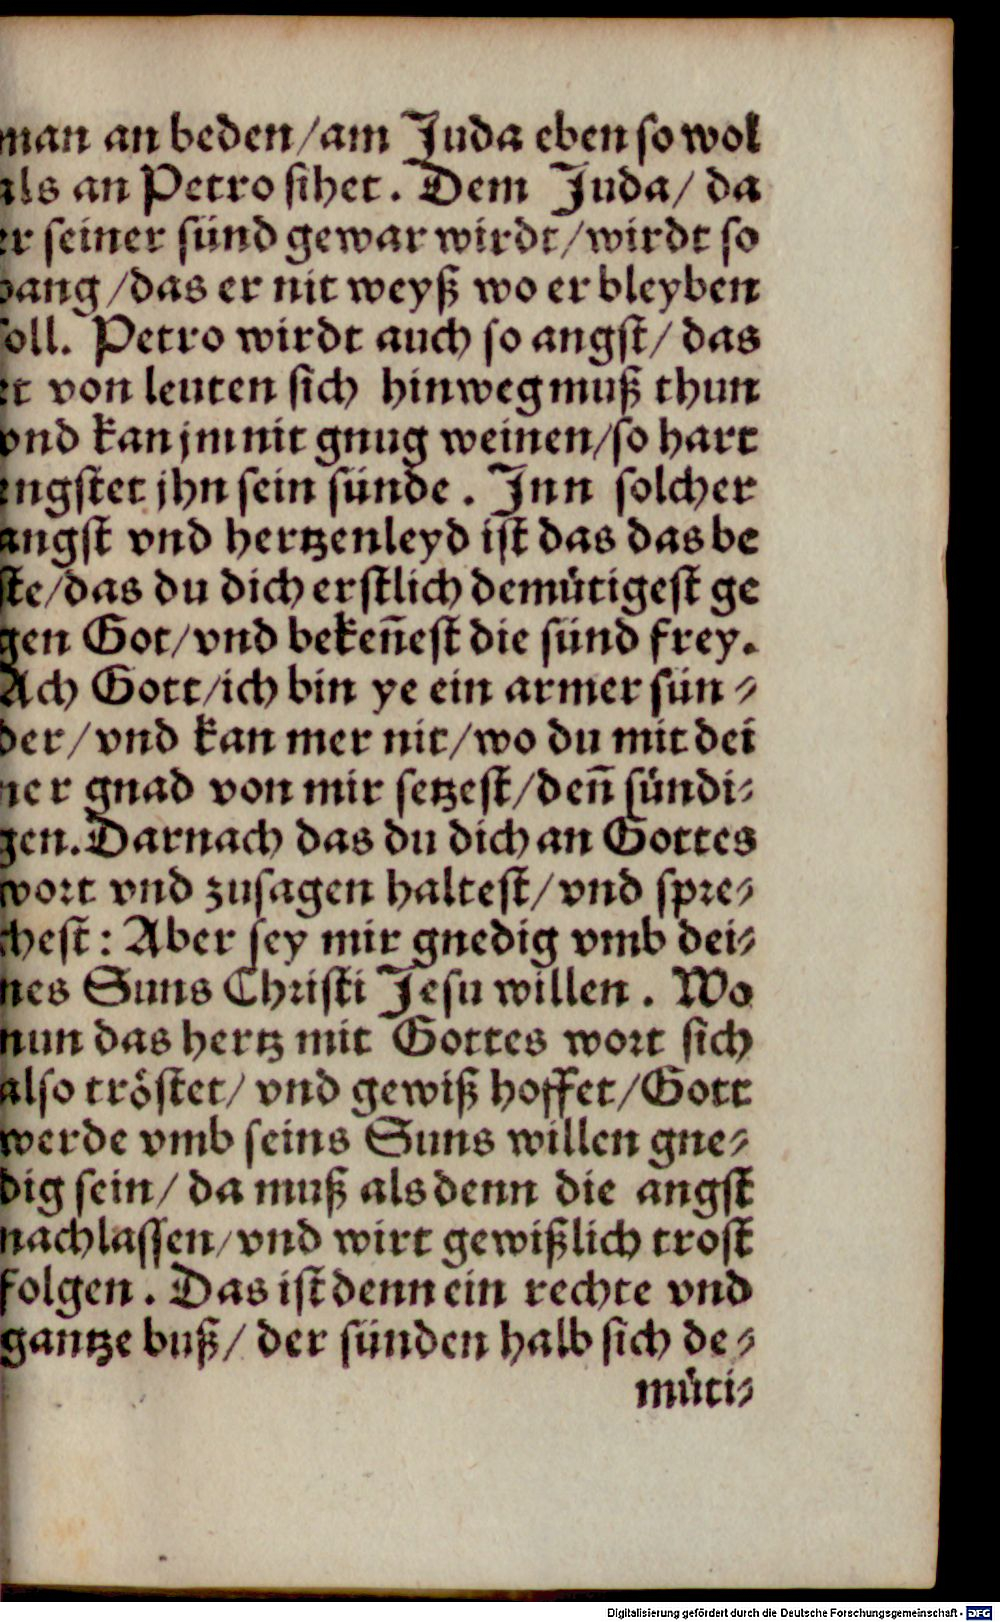 man an beden/am Juda eben so wol
als an Petro sihet. Dem Juda/ da
er seiner sünd gewar wirdt/wirdt so
bang/das er nit weyß wo er bleyben
soll. Petro wirdt auch so angst/ das
er von leuten sich hinweg muß thun
vnd kan jm nit gnug weinen/so hart
engstet jhn sein sünde. Inn solcher
angst vnd hertzenleyd ist das das be
ste/das du dich erstlich demütigest ge
gen Got/vnd bekeñest die sünd frey.
Ach Gott/ich bin ye ein armer sün⸗
der/vnd kan mer nit/wo du mit dei
ner gnad von mir setzest/deñ sündi⸗
gen. Darnach das du dich an Gottes
wort vnd zusagen haltest/vnd spre⸗
chest: Aber sey mir gnedig vmb dei⸗
nes Suns Christi Jesu willen. Wo
nun das hertz mit Gottes wort sich
also tröstet/ vnd gewiß hoffet/Gott
werde vmb seins Suns willen gne⸗
dig sein/ da muß als denn die angst
nachlassen/vnd wirt gewißlich trost
folgen. Das ist denn ein rechte vnd
gantze buß/ der sünden halb sich de⸗
müti⸗
Digitalisierung gefördert durch die Deutsche Forschungsgemeinschaft - DFG